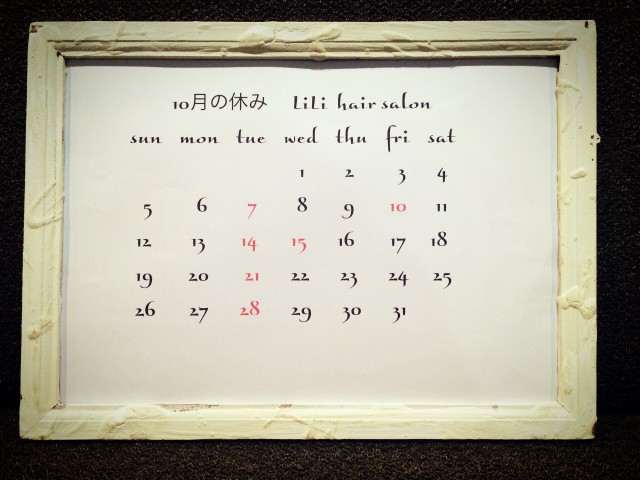 10月の休み LiLi hair salon
sun mon tue wed thu fri sat
1 2 3 4
5 6 7 8 9 10 11
12 13 14 15 16 17 18
19 20 21 22 23 24 25
26 27 28 29 30 31